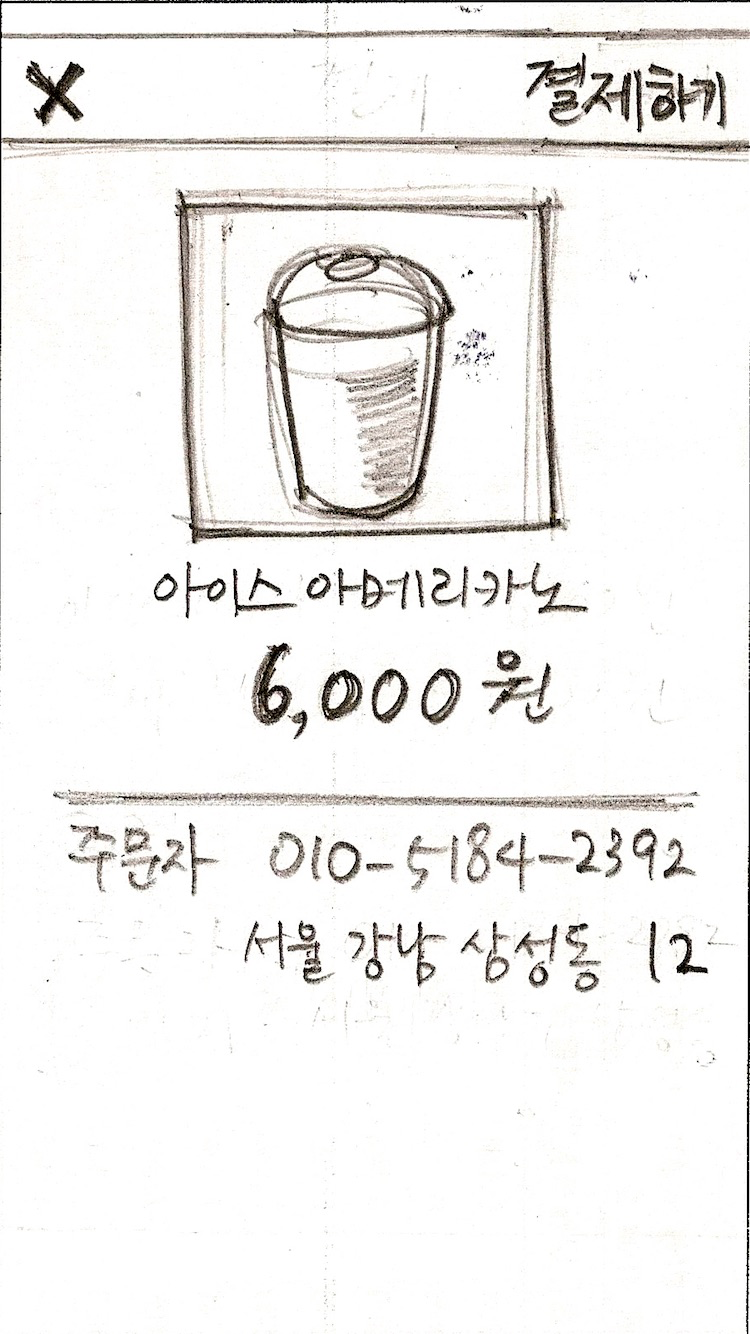 X 결제하기
아이스 아메리카노
6,000원
주문자 010-5184-2392
서울 강남 삼성동 12